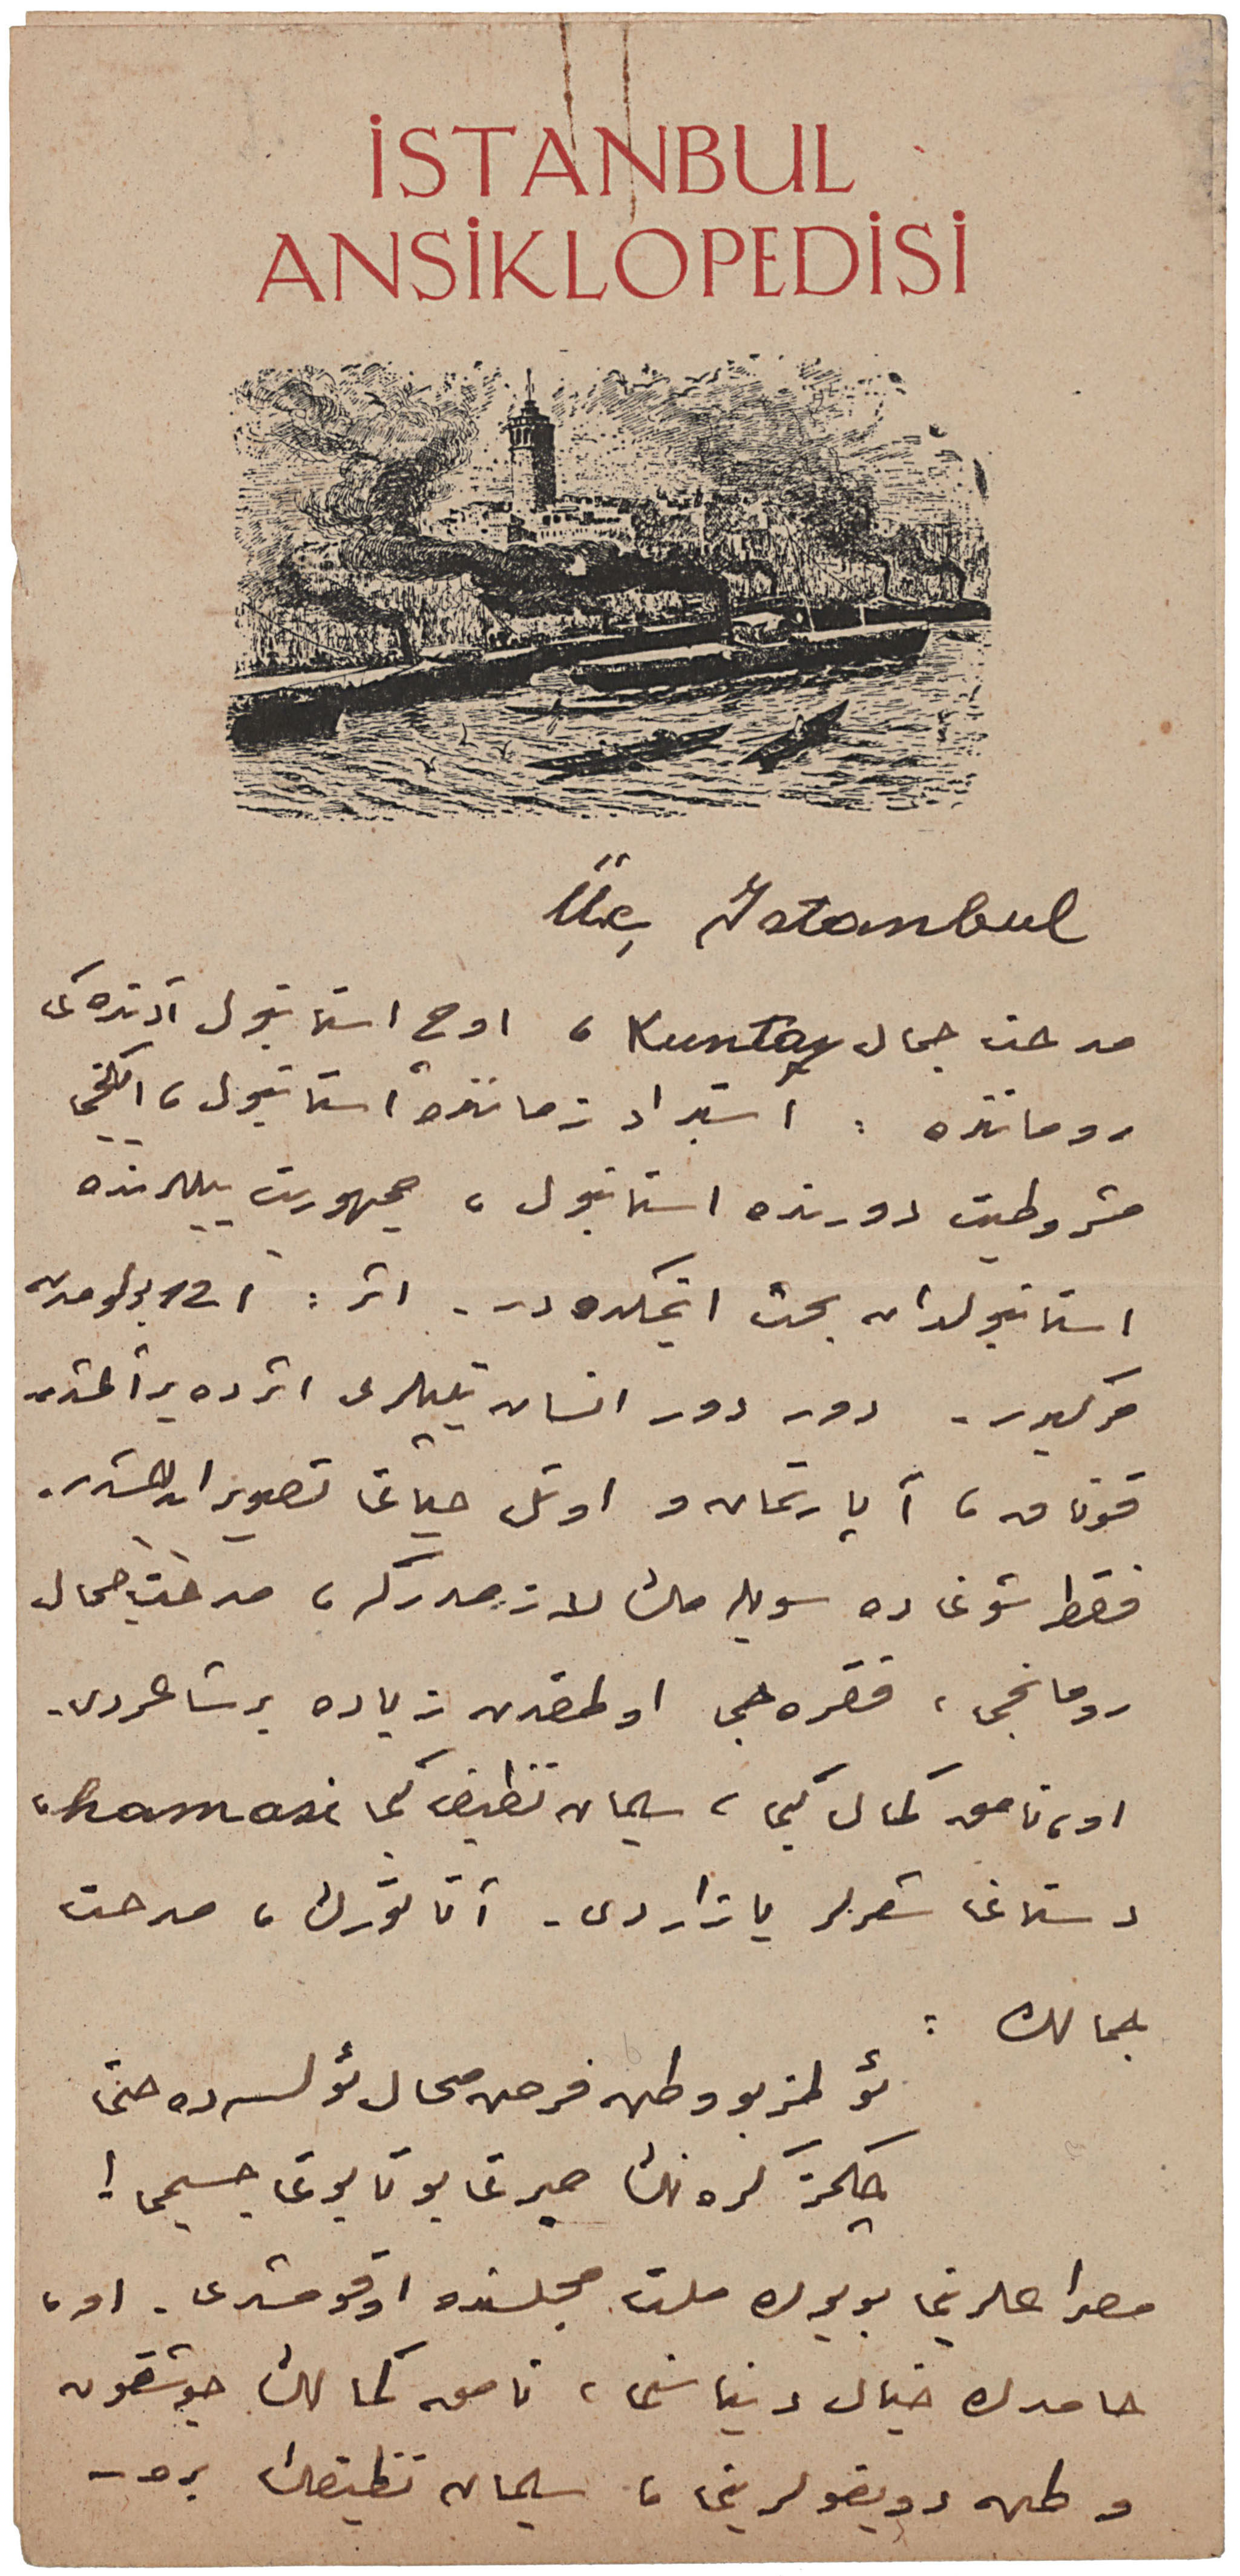 İSTANBUL
ANSİKLOPEDİSİ
Üç Istanbul
مدحت جمال Kuntay، اوچ استانبول آدنده‌كی
رومانده : استبداد زماننده استانبول، ایكنجی
مشروطیت دورنده استانبول، جمهوریت ییللرنده
استانبولدان بحث ایتمكده در. اثر : 12 بولومدن
مركبدر. دور دور انسان تیپلری اثرده یراتمشدر
قوناق، آپارتمان و اوتل حیاتی تصویر ایدلمشدر.
فقط شونی ده سویله‌مك لازمدركه، مدحت جمال
رومانجی، فقره‌جی اولمقدن زیاده بر شاعردی.
او، نامق كمال كبی، سلیمان نظیف كبی hamasi،
دستانی شعرلر یازاردی. آتاتورك، مدحت
جمالك :
ئولمز بو وطن فرض محال ئولسه ده حتی
چكمز كره نك صیرتی بو تابوتی جسیمی !
مصراعلرینی بویوك ملت مجلسنده اوقومشدی. او،
حامدك خیال دنیاسنی، نامق كمالك جوشقون
وطن دویغولرینی، سلیمان نظیفك